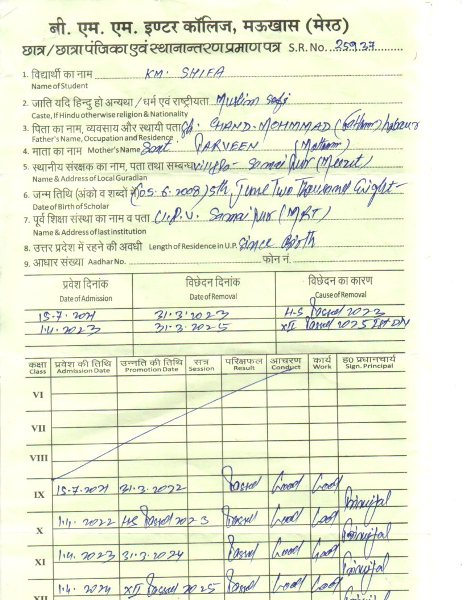 बी. एम. एम. इण्टर कॉलिज, मऊखास (मेरठ)
छात्र/छात्रा पंजिका एवं स्थानान्तरण प्रमाण पत्र S.R. No. 25937
1. विद्यार्थी का नाम KM. SHIFA
Name of Student
2. जाति यदि हिन्दु हो अन्यथा / धर्म एवं राष्ट्रीयता Muslim
Caste, If Hindu otherwise religion & Nationality
3. पिता का नाम, व्यवसाय और स्थायी पता Sh. CHAND. MOHMMAD (Father)
Father's Name, Occupation and Residence
4. माता का नाम Mother's Name Smt. PARVEEN (Mother)
5. स्थानीय संरक्षक का नाम, पता तथा सम्बन्ध (Meerut)
Name & Address of Local Guradian
6. जन्म तिथि (अंको व शब्दों में) (05.6.2008) 5th June Two thousand Eight
Date of Birth of Scholar
7. पूर्व शिक्षा संस्था का नाम व पता (MRT)
Name & Address of last institution
8. उत्तर प्रदेश में रहने की अवधी Length of Residence in U.P. Since Birth
9. आधार संख्या Aadhar No. फोन नं.
प्रवेश दिनांक विछेदन दिनांक विछेदन का कारण
Date of Admission Date of Removal Cause of Removal
15-7-2021 31-3-2023 H-S Passed 2023
1.4.2023 31-3-2025 XII Passed 2025
कक्षा प्रवेश की तिथि उन्नति की तिथि सत्र परिक्षफल आचरण कार्य ह0 प्रधानचार्य
Class Admission Date Promotion Date Session Result Conduct Work Sign. Principal
VI
VII
VIII
IX 15-7-2021 31-3-2022 Passed Good Good Principal
X 1.4.2022 H-S Passed 2023 Passed Good Good Principal
XI 1.4.2023 31-3-2024 Passed Good Good Principal
XII 1.4.2024 XII Passed 2025 Passed Good Good Principal